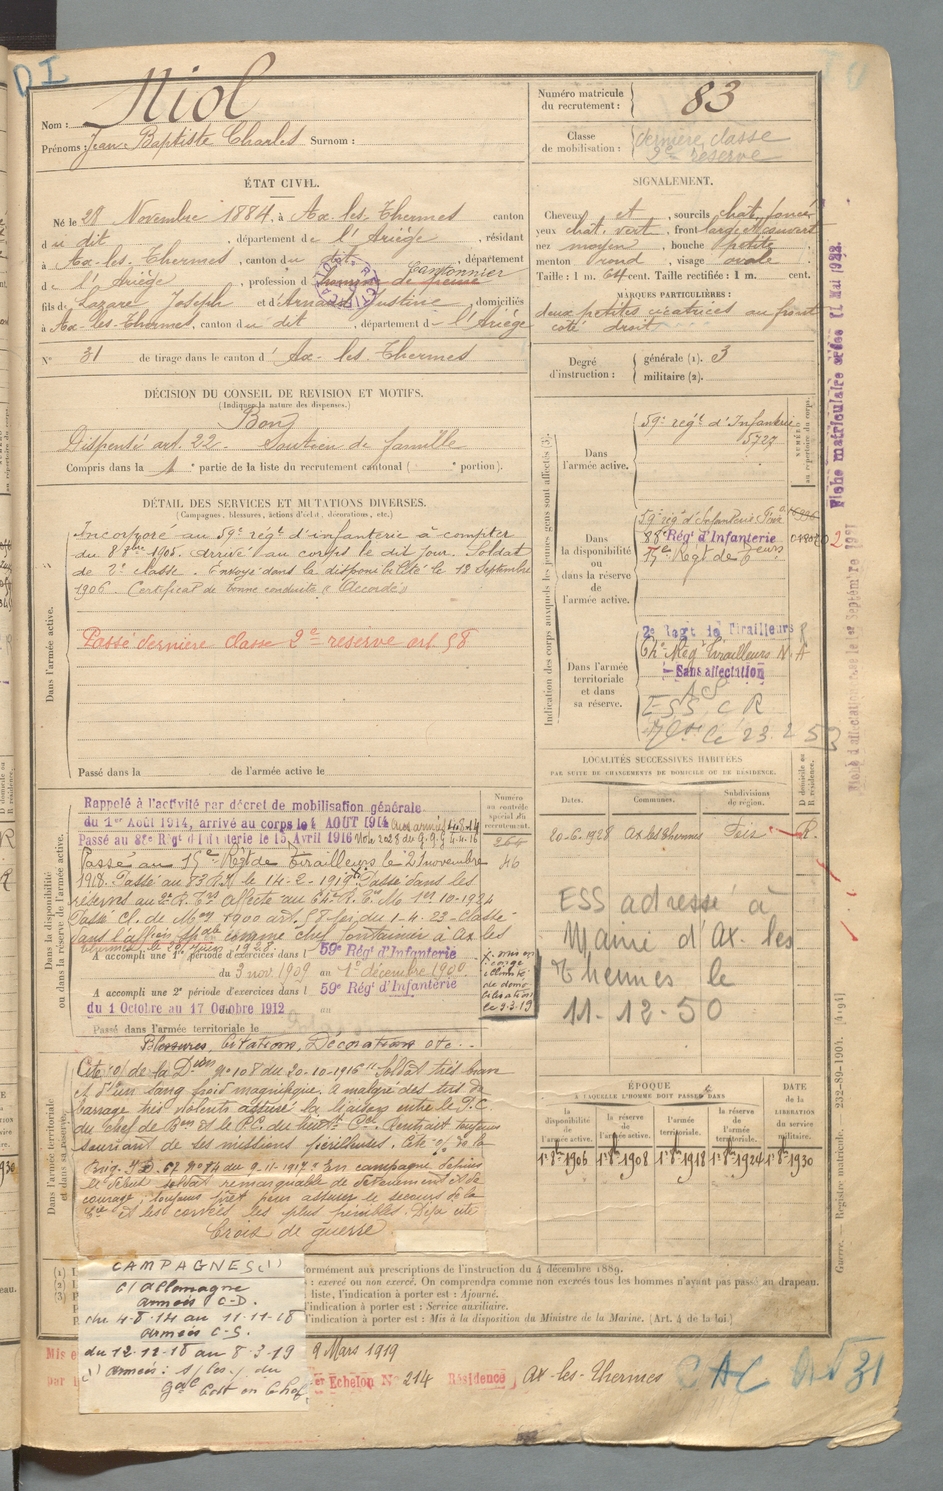 DI
Nom : Niol
Prénoms : Jean Baptiste Charles Surnom :
Numéro matricule du recrutement : 83
Classe de mobilisation : dernière classe
2e reserve
ÉTAT CIVIL.
Né le 28 Novembre 1884, à Ax-les-Thermes canton
du dit, département de l'Ariège, résidant
à Ax-les-Thermes, canton du dit, département
de l'Ariège, profession d Cantonnier
fils de Lazare Joseph et d'Arnaud Justine, domiciliés
à Ax-les-Thermes, canton du dit, département de l'Ariège
N° 31 de tirage dans le canton d'Ax-les-Thermes
SIGNALEMENT.
Cheveux et, sourcils chat. foncé
yeux chat. vert, front large découvert
nez moyen, bouche petite
menton rond, visage ovale
Taille : 1 m. 64 cent. Taille rectifiée : 1 m. cent.
MARQUES PARTICULIÈRES :
deux petites cicatrices au front
côté droit
Degré d'instruction : générale (1). 3
militaire (2).
DÉCISION DU CONSEIL DE REVISION ET MOTIFS.
(Indiquer la nature des dispenses.)
Bon
Dispensé art. 22. Soutien de famille
Compris dans la 1e partie de la liste du recrutement cantonal ( e portion).
DÉTAIL DES SERVICES ET MUTATIONS DIVERSES.
(Campagnes, blessures, actions d'éclat, décorations, etc.)
Dans l'armée active.
Incorporé au 59e régt d'infanterie à compter
du 8 8bre 1905. Arrivé au corps le dit jour. Soldat
de 2e classe. Envoyé dans la disponibilité le 18 Septembre
1906. Certificat de bonne conduite "Accordé"
Passé dernière classe 2e reserve art 58
Passé dans la de l'armée active le
Indication des corps auxquels les jeunes gens sont affectés (3).
Dans l'armée active.
59e régt d'Infanterie
5727
NUMÉRO au répertoire du corps.
Dans la disponibilité ou dans la réserve de l'armée active.
59e régt d'Infanterie
88e Régt d'Infanterie
15e Régt de Tirailleurs
Dans l'armée territoriale et dans sa réserve.
2e Régt de Tirailleurs
Sans affectation
ESS C R
le 23.2.53
Fiche matriculaire
LOCALITÉS SUCCESSIVES HABITÉES
PAR SUITE DE CHANGEMENTS DE DOMICILE OU DE RÉSIDENCE.
Dates. Communes. Subdivisions de région. D domicile ou R résidence.
20-6-1928 Ax les Thermes Foix R.
ESS adressé à
Mairie d'Ax. les
Thermes le
11-12-50
Dans la disponibilité ou dans la réserve de l'armée active.
Numéro au contrôle spécial du recrutement.
264
46
Rappelé à l'activité par décret de mobilisation générale
du 1er Août 1914, arrivé au corps le 4 AOUT 1914
Passé au 88e Régt d'Infanterie le 15 Avril 1916
Passé au 15e Régt de Tirailleurs le 21 novembre
1918. Passé au 83 R.I. le 14-2-1919. Passé dans les
réserves
Passé cl. de Mon 1900 art. 58 loi du 1-4-23. Classé
dans l'affection spale comme chef fontainier à Ax les
Thermes,
A accompli une 1re période d'exercices dans l 59e Régt d'Infanterie
du 3 nov. 1909 au 1er décembre 1909.
A accompli une 2e période d'exercices dans l 59e Régt d'Infanterie
du 1 Octobre au 17 Octobre 1912 au
Passé dans l'armée territoriale le
mis en
congé
illimité
de démo
bilisation
le 9.3.19
Dans l'armée territoriale et dans sa réserve.
Blessures, Citations, Décorations etc.
Cité o/ de la Don n° 108 du 20-10-1916 "Soldat très brave
et d'un sang froid magnifique, a malgré des tirs de
barrage très violents assuré la liaison entre le P.C.
du chef de Bon et le P.C. du Lieutt Cel. Rentrait toujours
souriant de ses missions périlleuses. Cité o/ de la
Brig. n° 84 du 9-11-1917 : En campagne depuis
le début soldat remarquable de dévouement et de
courage, toujours prêt pour assurer le secours de la
Cie et les corvées les plus pénibles. Déjà cité
Croix de guerre
ÉPOQUE
À LAQUELLE L'HOMME DOIT PASSER DANS
la disponibilité de l'armée active.
la réserve de l'armée active.
l'armée territoriale.
la réserve de l'armée territoriale.
DATE de la LIBÉRATION du service militaire.
1er 8bre 1906 1er 8bre 1908 1er 8bre 1918 1er 8bre 1924 1er 8bre 1930
Guerre. — Registre matricule. 232-89-1904. [4194]
formément aux prescriptions de l'instruction du 4 décembre 1889.
: exercé ou non exercé. On comprendra comme non exercés tous les hommes n'ayant pas passé au drapeau.
liste, l'indication à porter est : Ajourné.
l'indication à porter est : Service auxiliaire.
l'indication à porter est : Mis à la disposition du Ministre de la Marine. (Art. 4 de la loi.)
CAMPAGNES (1)
c/ Allemagne
armées C-D.
du 4-8-14 au 11-11-18
armées C-G.
du 12-11-18 au 8-3-19
(1) Armées : s/ les o/ du
Gal Cdt en Chef
Mis e
9 Mars 1919
Echelon N° 214 Résidence Ax-les-Thermes
CAC